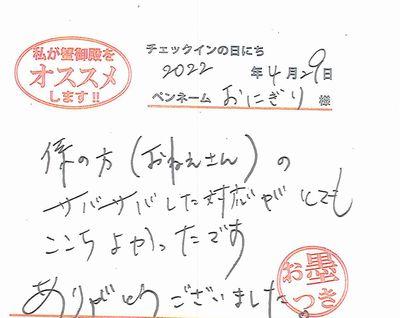 私が蟹御殿を
オススメ
します!!
チェックインの日にち
2022 年 4 月 29 日
ペンネーム おにぎり 様
様の方 (おねえさん) の
サバサバした対応がとても
ここちよかったです
ありがとうございました。
お墨
つき